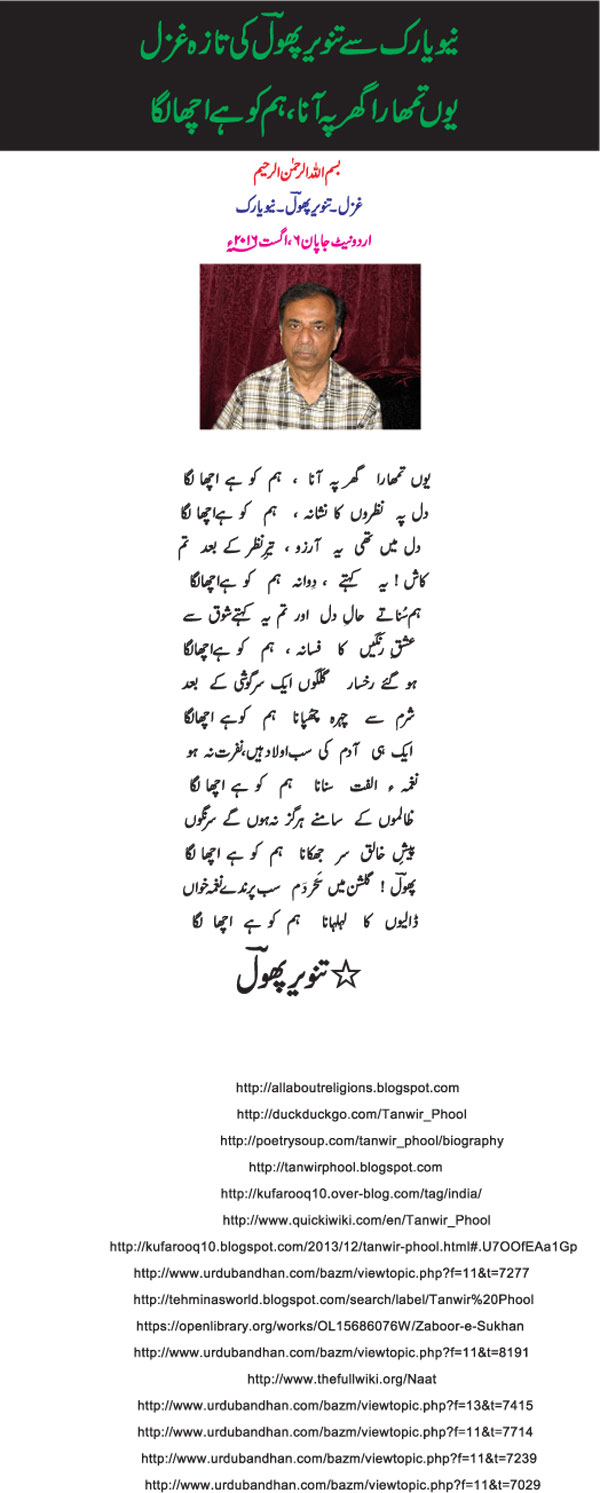 نیویارک سے تنویر پھولؔ کی تازہ غزل
یوں تمھارا گھر پہ آنا، ہم کو ہے اچھا لگا
بسم اللہ الرحمٰن الرحیم
غزل۔تنویر پھولؔ۔نیویارک
اردو نیٹ جاپان ۶، اگست ۲۰۱۶ء
یوں تمھارا گھر پہ آنا ، ہم کو ہے اچھا لگا
دل پہ نظروں کا نشانہ ، ہم کو ہے اچھا لگا
دل میں تھی یہ آرزو ، تیرِ نظر کے بعد تم
کاش ! یہ کہتے ، دِوانہ ہم کو ہے اچھا لگا
ہم سُناتے حالِ دل اور تم یہ کہتے شوق سے
عشقِ رنگیں کا فسانہ ، ہم کو ہے اچھا لگا
ہو گئے رخسار گلگوں ایک سرگوشی کے بعد
شرم سے چہرہ چھُپانا ہم کو ہے اچھا لگا
ایک ہی آدم کی سب اولاد ہیں، نفرت نہ ہو
نغمہ ء الفت سنانا ہم کو ہے اچھا لگا
ظالموں کے سامنے ہرگز نہ ہوں گے سرنگوں
پیشِ خالق سر جھکانا ہم کو ہے اچھا لگا
پھولؔ ! گلشن میں سَحَر دَم سب پرندے نغمہ خواں
ڈالیوں کا لہلہانا ہم کو ہے اچھا لگا
☆ تنویر پھولؔ
http://allaboutreligions.blogspot.com
http://duckduckgo.com/Tanwir_Phool
http://poetrysoup.com/tanwir_phool/biography
http://tanwirphool.blogspot.com
http://kufarooq10.over-blog.com/tag/india/
http://www.quickiwiki.com/en/Tanwir_Phool
http://kufarooq10.blogspot.com/2013/12/tanwir-phool.html#.U7OOfEAa1Gp
http://www.urdubandhan.com/bazm/viewtopic.php?f=11&t=7277
http://tehminasworld.blogspot.com/search/label/Tanwir%20Phool
https://openlibrary.org/works/OL15686076W/Zaboor-e-Sukhan
http://www.urdubandhan.com/bazm/viewtopic.php?f=11&t=8191
http://www.thefullwiki.org/Naat
http://www.urdubandhan.com/bazm/viewtopic.php?f=13&t=7415
http://www.urdubandhan.com/bazm/viewtopic.php?f=11&t=7714
http://www.urdubandhan.com/bazm/viewtopic.php?f=11&t=7239
http://www.urdubandhan.com/bazm/viewtopic.php?f=11&t=7029